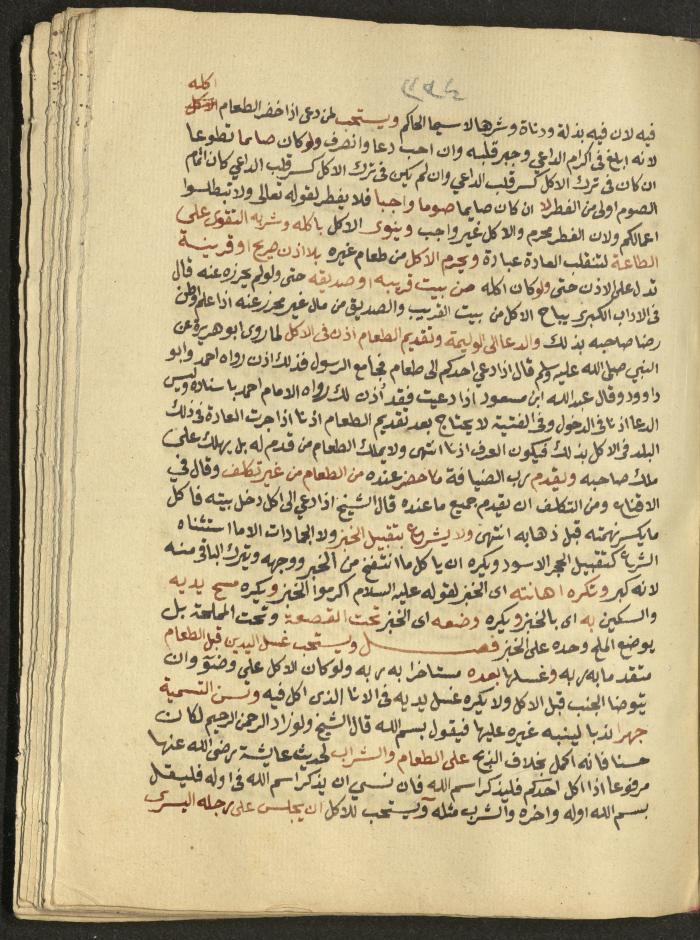 اكله
فيه لان فيه بذلة ودناة وشرها لاسيما الحاكم ويستحب لمن دعى اذا حضر الطعام
لانه ابلغ فى اكرام الداعي وجبر قلبه وان احب دعا وانصرف ولو كان صايما تطوعا
ان كان فى ترك الاكل كسر قلب الداعي وان لم يكن فى ترك الاكل كسر قلب الداعي كان اتمام
الصوم اولى من الفطر لا ان كان صايما صوما واجبا فلا يفطر لقوله تعالى ولا تبطلوا
اعمالكم ولان الفطر محرم والاكل غير واجب وينوى الاكل باكله وشربه التقوى على
الطاعة لتنقلب العادة عبادة ويحرم الاكل من طعام غيره بلا اذن صريح او قرينة
تدل على الاذن حتى ولو كان اكله من بيت قريبه او صديقه حتى ولو لم يحرزه عنه قال
فى الاداب الكبرى يباح الاكل من بيت القريب والصديق من مال غير محرز عنه اذا علم او ظن
رضا صاحبه بذلك والدعا الى الوليمة وتقديم الطعام اذن فى الاكل لما روى ابو هريرة عن
النبى صلى الله عليه وسلم قال اذا دعي احدكم الى طعام فجا مع الرسول فذلك اذن رواه احمد وابو
داوود وقال عبد الله ابن مسعود اذا دعيت فقد أذن لك رواه الامام احمد باسناده وليس
الدعا اذنا فى الدخول وفى الغنية لا يحتاج بعد تقديم الطعام اذنا اذا جرت العادة فى ذلك
البلد فى الاكل بذلك فيكون العرف اذنا انتهى ولا يملك الطعام من قدم له بل يهلك على
ملك صاحبه ويقدم رب الضيافة ما حضر عنده من الطعام من غير تكلف وقال فى
الاقناع ومن التكلف ان يقدم جميع ما عنده قال الشيخ اذا دعي الى اكل دخل بيته فاكل
ما يكسر نهمته قبل ذهابه انتهى ولا يشروع بتقبيل الخبز ولا الجمادات الا ما استثناه
الشرع كتقبيل الحجر الاسود ويكره ان ياكل ما انتفخ من الخبز ووجهه ويترك الباقى منه
لانه كبر وتكره اهانته اى الخبز لقوله عليه السلام اكرموا الخبز ويكره مسح يديه
والسكين به اى بالخبز ويكره وضعه اى الخبز تحت القصعة وتحت المملحة بل
يوضع الملح وحده على الخبز فصل ويستحب غسل اليدين قبل الطعام
متقدما به ربه وغسلها بعده مستاخرا به ربه ولو كان الاكل على وضوٓ وان
يتوضا الجنب قبل الاكل ولا يكره غسل يديه فى الانا الذى اكل فيه وتسن التسمية
جهرا ندبا لينبه غيره عليها فيقول بسم الله قال الشيخ ولو زاد الرحمن الرحيم لكان
حسنا فانه اكمل بخلاف الذبح على الطعام والشراب لحديث عائشة رضى الله عنها
مرفوعا اذا اكل احدكم فليذكر اسم الله فان نسي ان يذكر اسم الله فى اوله فليقل
بسم الله اوله واخره والشرب مثله ويستحب للاكل ان يجلس على رجله اليسرى